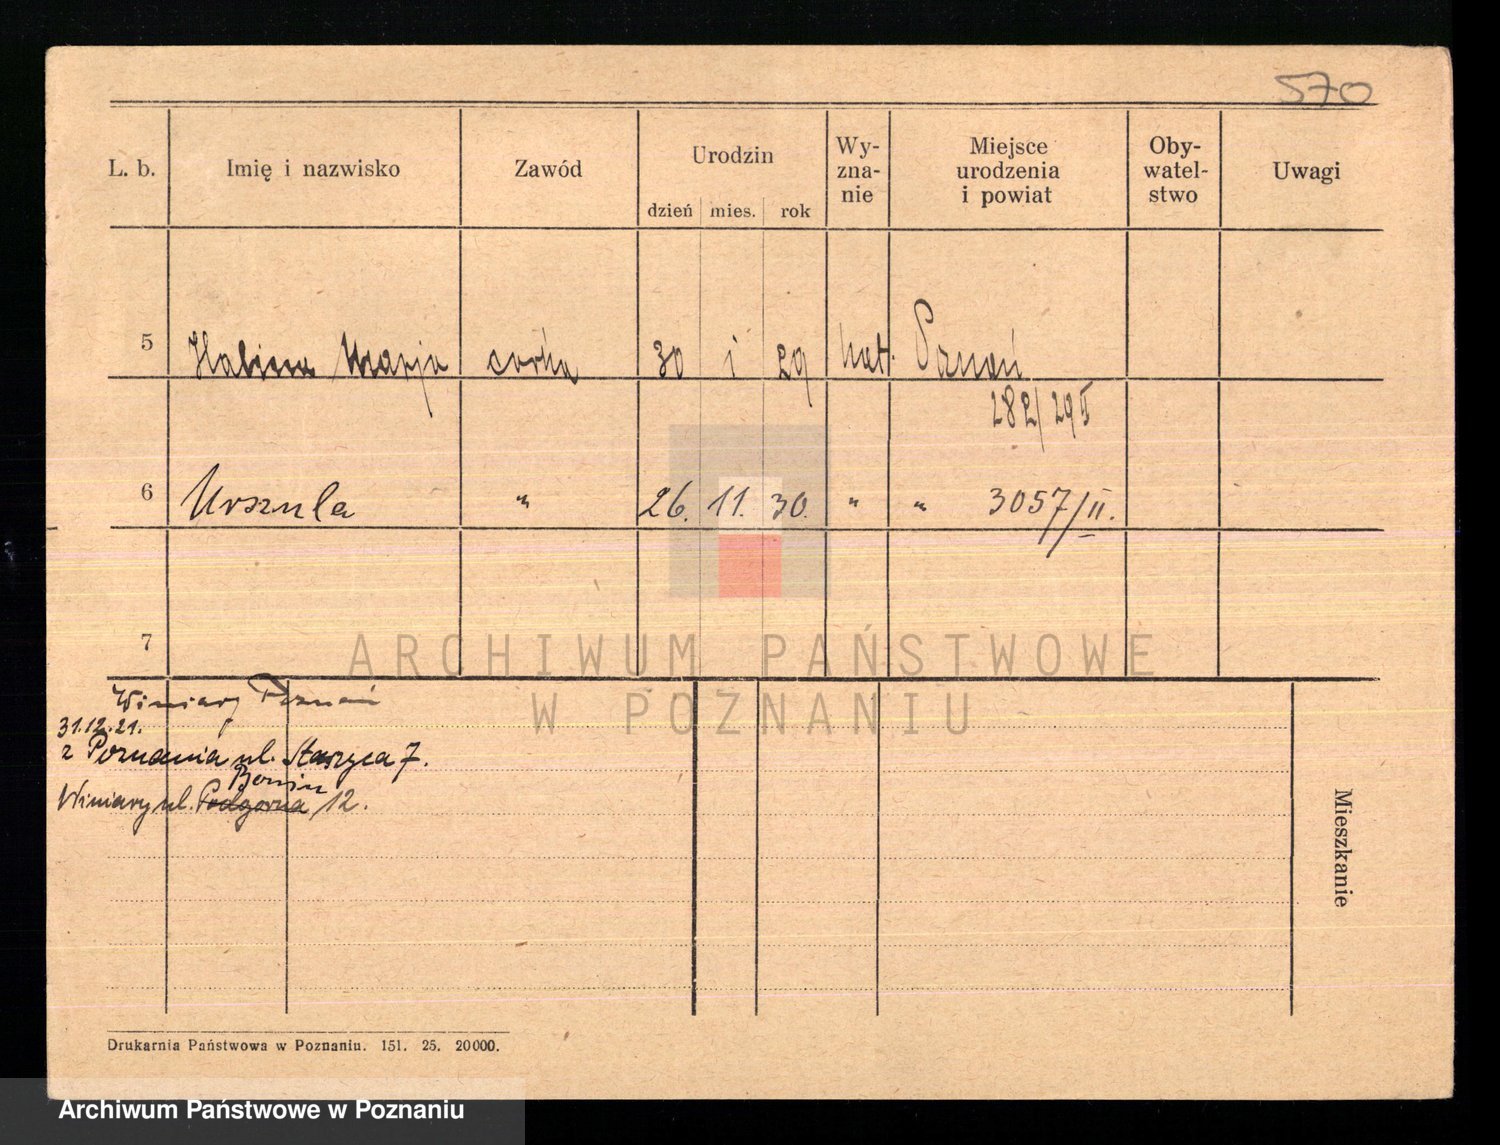 570
L. b. Imię i nazwisko Zawód Urodzin Wy- Miejsce Oby- Uwagi
zna- urodzenia watel-
nie i powiat stwo
dzień mies. rok
5 Halina Marja córka 30 i 29 kat. Poznań
282/29 I
6 Urszula " 26. 11. 30. " " 3057/II.
7
ARCHIWUM PAŃSTWOWE
W POZNANIU
Winiary Poznań
31.12.21.
z Poznania ul. Staszyca 7.
Bonin
Winiary ul. Podgorna 12.
Mieszkanie
Drukarnia Państwowa w Poznaniu. 151. 25. 20000.
Archiwum Państwowe w Poznaniu